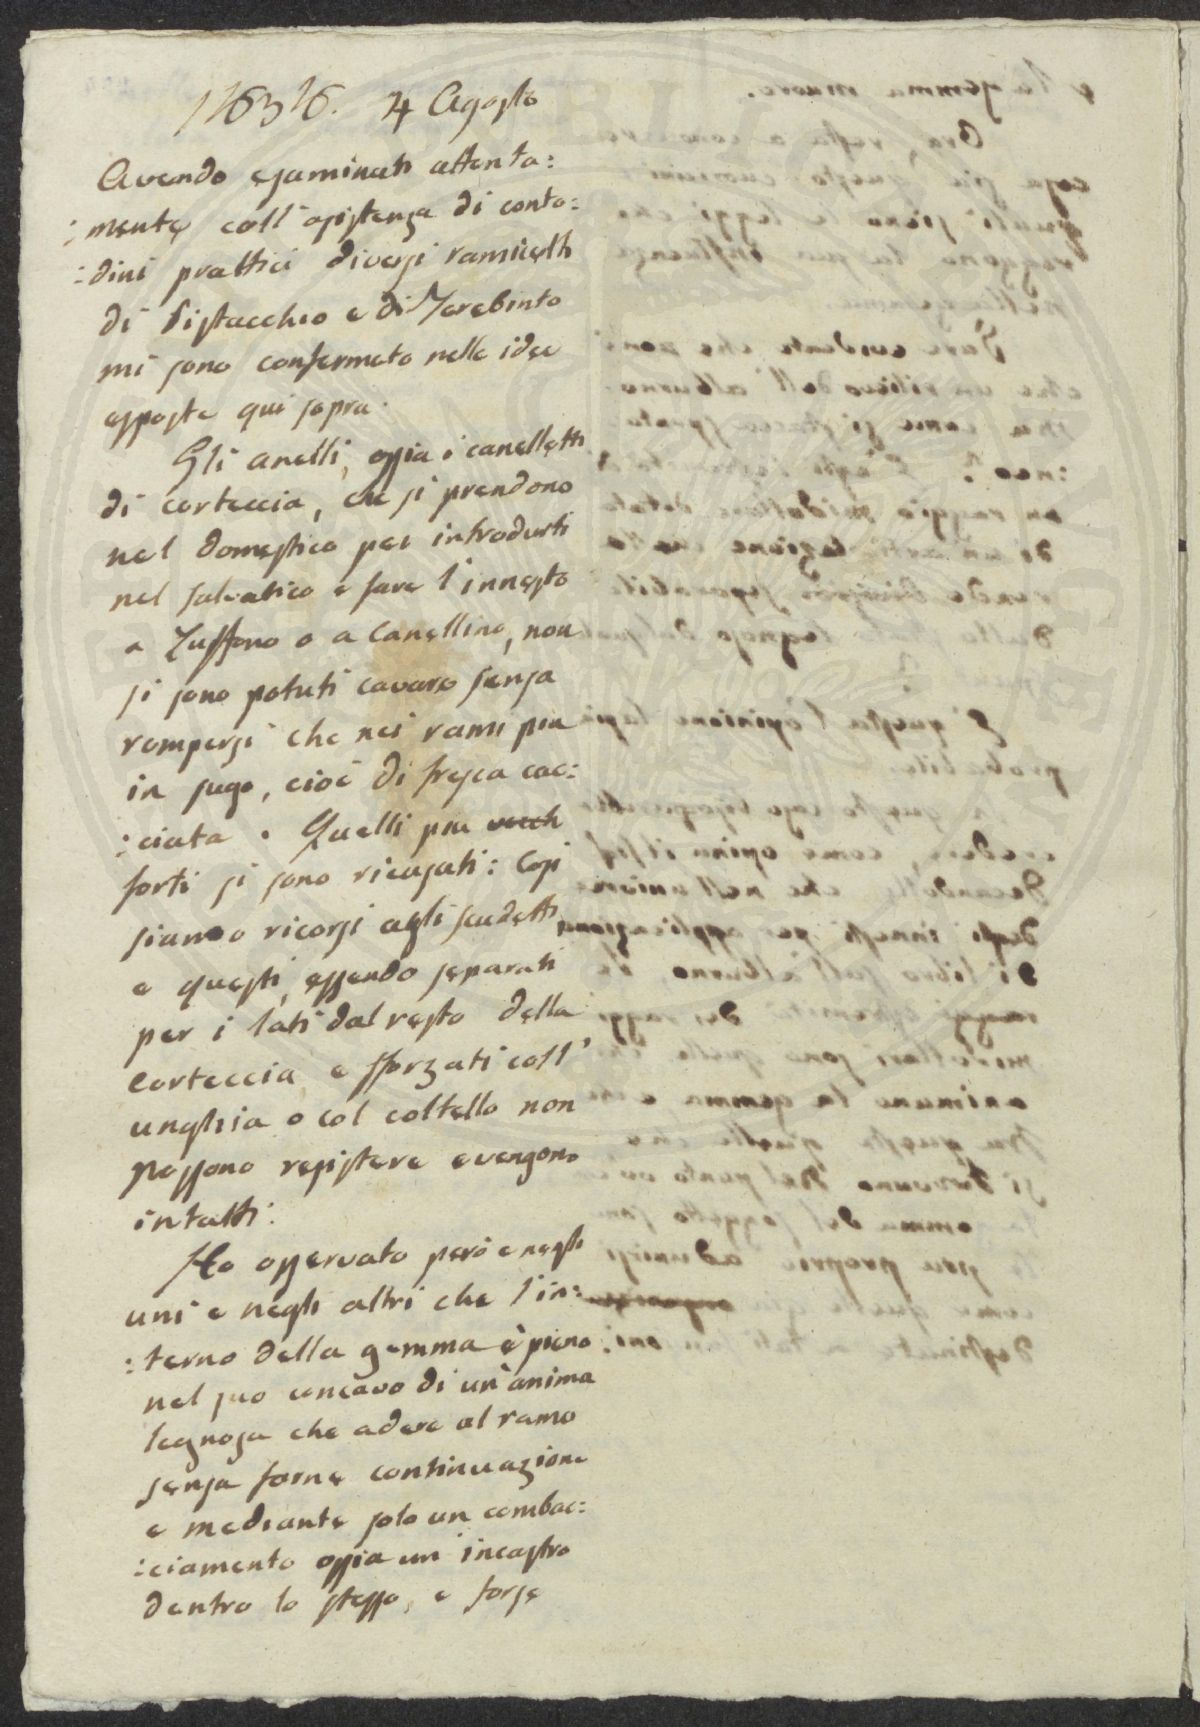 4 Agosto
Avendo esaminati attenta:
:mente coll'assistenza di conta:
:dini prattici diversi ramicelli
di Pistacchio e di Terebinto
mi sono confermato nelle idee
esposte qui sopra.
Gli anelli, ossia i canelletti
di corteccia, che si prendono
nel domestico per introdurli
nel salvatico e fare l'innesto
a Zuffono o a Canellino, non
si sono potuti cavare senza
rompersi che nei rami piu
in sugo, cioè di fresca cac:
:ciata. Quelli piu vecch
forti si sono ricusati: Cosi
siamo ricorsi agli scudetti,
e questi, essendo separati
per i lati dal resto della
corteccia e sforzati coll'
unghia o col coltello non
possono resistere e vengono
intatti.
Ho osservato però e negli
uni e negli altri che l'in:
:terno della gemma è pieno
nel suo concavo di un'anima
legnosa che adere al ramo
senza farne continuazione
e mediante solo un combac:
:ciamento ossia un incastro
dentro lo stesso, e forse